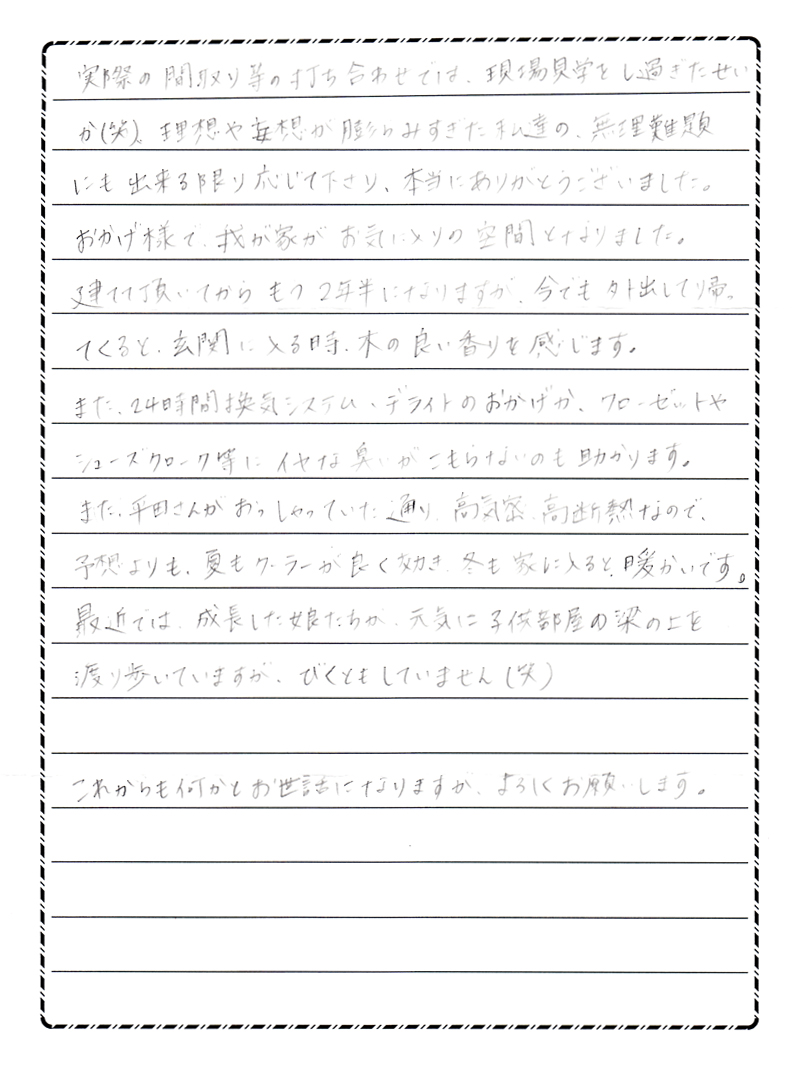 実際の間取り等の打ち合わせでは、現場見学をし過ぎたせい
か(笑)、理想や妄想が膨らみすぎた私達の、無理難題
にも出来る限り応じて下さり、本当にありがとうございました。
おかげ様で、我が家がお気に入りの空間となりました。
建てて頂いてからもう2年半になりますが、今でも外出して帰っ
てくると、玄関に入る時、木の良い香りを感じます。
また、24時間換気システム、デライトのおかげか、クローゼットや
シューズクローク等にイヤな臭いがこもらないのも助かります。
また、平田さんがおっしゃっていた通り、高気密、高断熱なので、
予想よりも、夏もクーラーが良く効き、冬も家に入ると、暖かいです。
最近では、成長した娘たちが、元気に子供部屋の梁の上を
渡り歩いていますが、びくともしていません(笑)
これからも何かとお世話になりますが、よろしくお願いします。